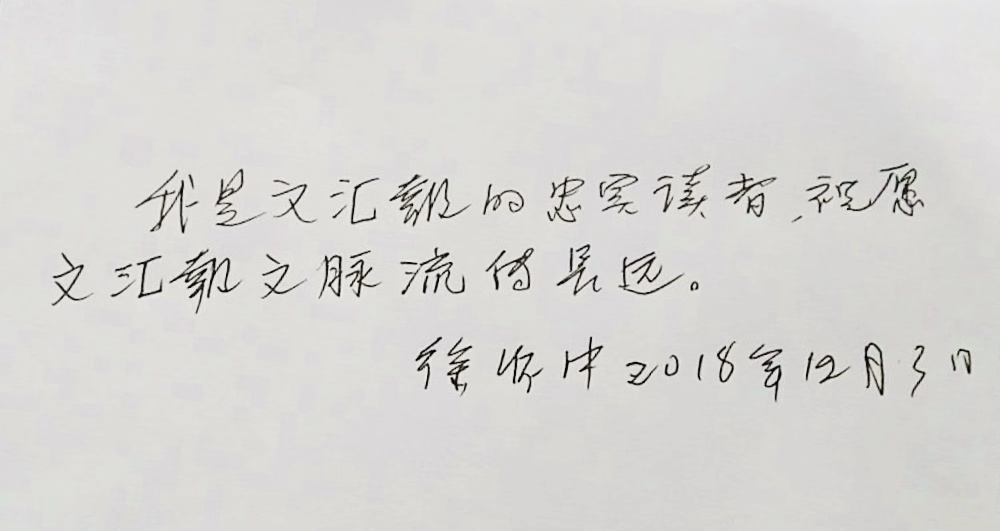 我是文汇報的忠实读者，祝愿
文汇報文脉流传长远。
徐怀中2018年12月3日